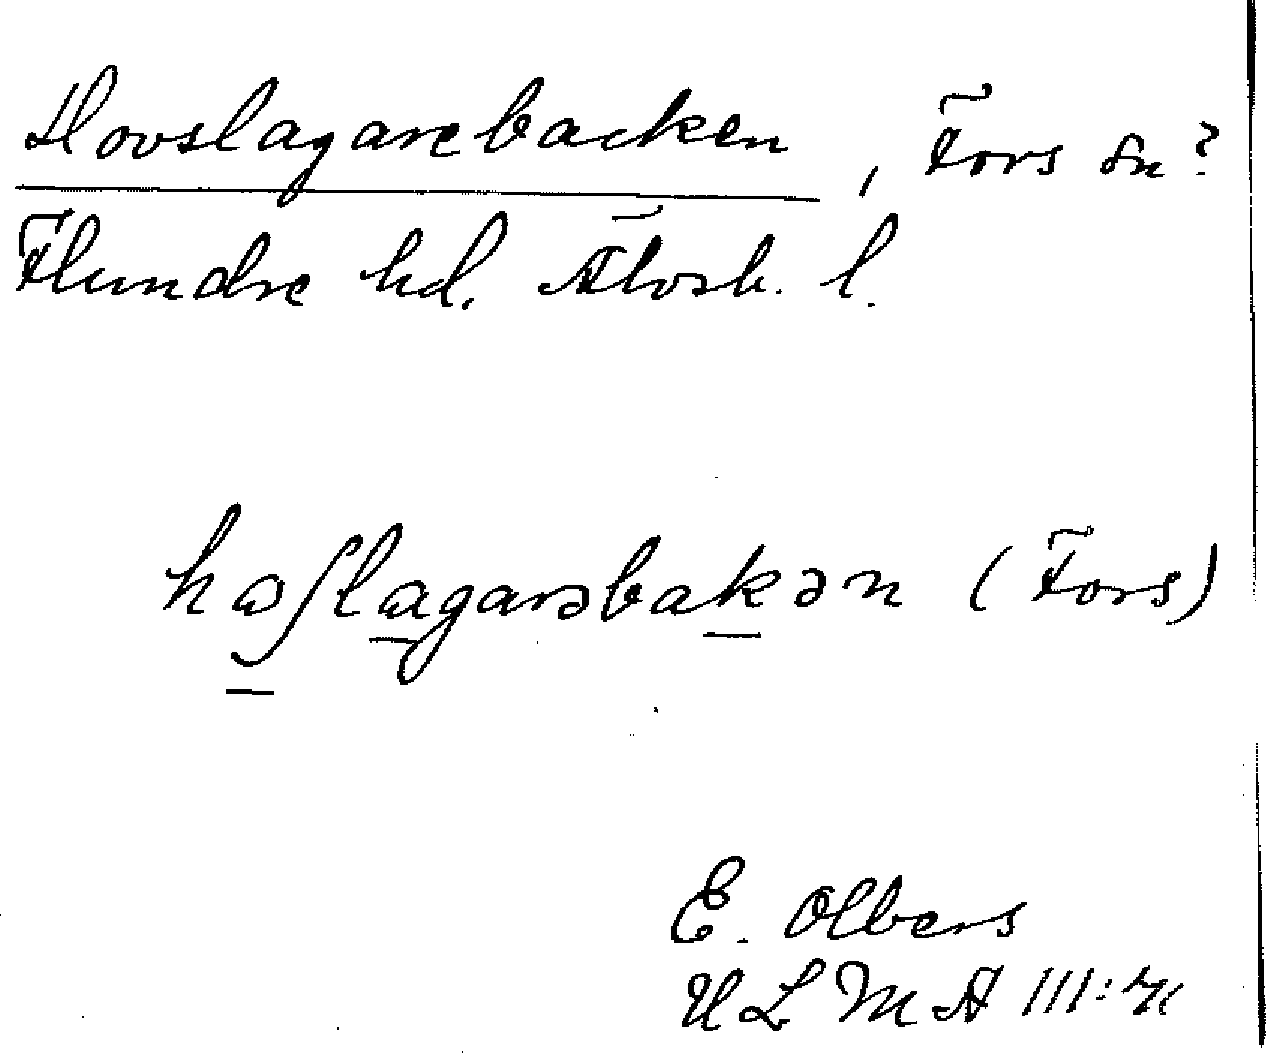 Hovslagarebacken, Fors sn?
Flundre hd. Älvsb. l.
hɷflɷgarəbakən (Fors)
E. Olbers
ULMA 111: